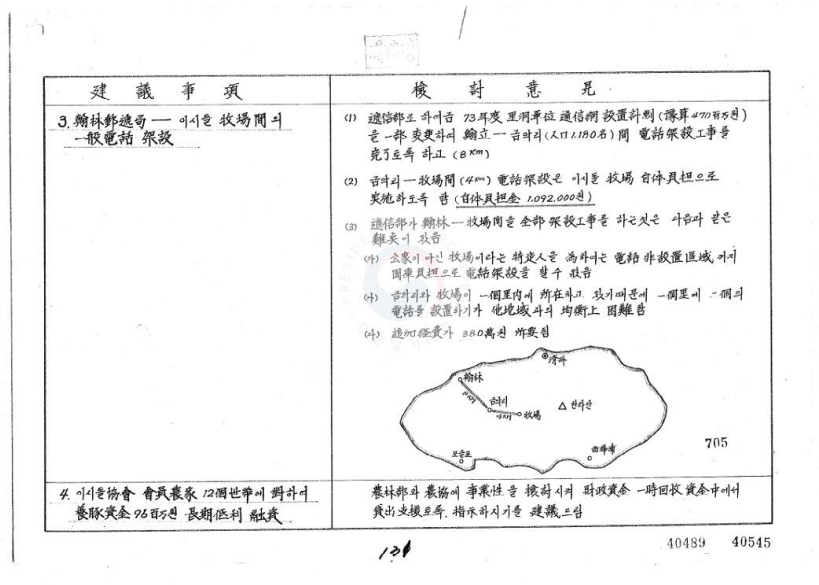 建議事項
檢討意見
3. 翰林郵遞局 — 이시돌 牧場間의
一般電話 架設
(1) 遞信部로 하여금 73年度 里洞單位 通信網 設置計劃 (豫算 470百万원)
을 一部 変更하여 翰立 — 금악리 (人口 1.180名) 間 電話架設工事를
完了토록 하고 (8km)
(2) 금악리 — 牧場間 (4km) 電話架設은 이시돌 牧場 自体負担으로
実施하도록 함 (自体負担金 1.092.000원)
(3) 遞信部가 翰林 — 牧場間을 全部 架設工事를 하는것은 다음과 같은
難点이 있음
(가) 公衆이 아닌 牧場이라는 特定人을 為하여는 電話 非設置區域까지
國庫負担으로 電話架設을 할수 없음
(나) 금악리와 牧場이 一個里内에 所在하고 있기때문에 一個里에 二個의
電話를 設置하기가 他地域과의 均衡上 困難함
(다) 追加経費가 380萬원 所要됨
濟州
翰林
8km
금악리
4km
牧場
한라산
모슬포
西帰浦
705
4. 이시돌協會 會員農家 12個世帶에 對하여
養豚資金 96百万원 長期低利 融資
農林部와 農協에 事業性을 検討시켜 財政資金 一時回收資金中에서
貸出支援토록 指示하시기를 建議드림
131
40489
40545